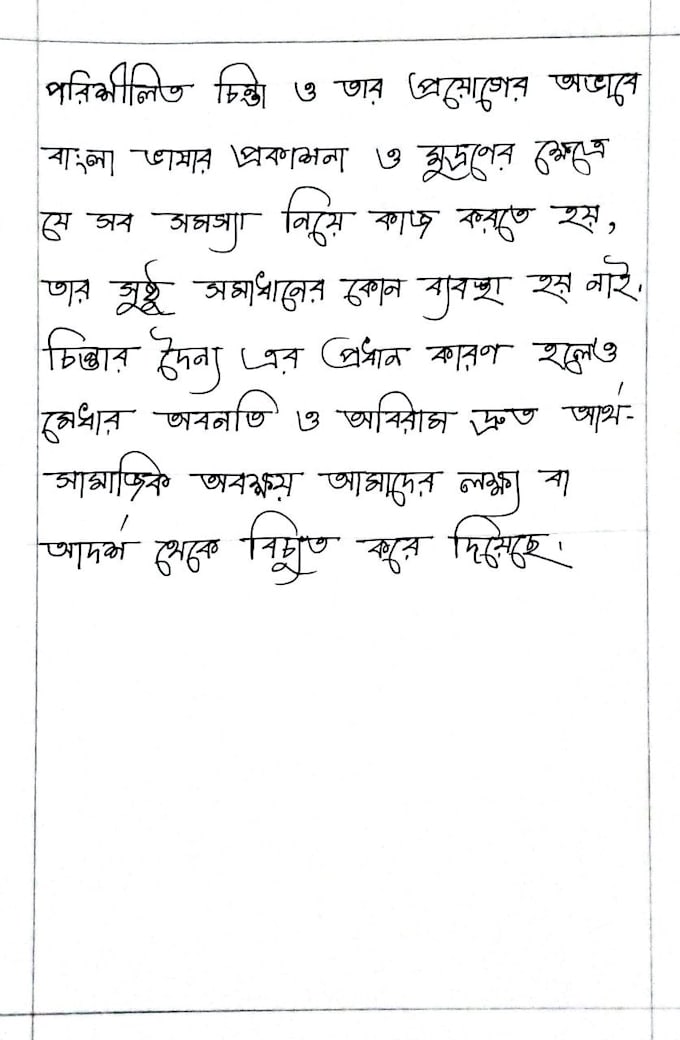 পরিশীলিত চিন্তা ও তার প্রয়োগের অভাবে
বাংলা ভাষার প্রকাশনা ও মুদ্রণের ক্ষেত্রে
যে সব সমস্যা নিয়ে কাজ করতে হয়,
তার সুষ্ঠু সমাধানের কোন ব্যবস্থা হয় নাই।
চিন্তার দৈন্য এর প্রধান কারণ হলেও
মেধার অবনতি ও অবিরাম দ্রুত আর্থ-
সামাজিক অবক্ষয় আমাদের লক্ষ্য বা
আদর্শ থেকে বিচ্যুত করে দিয়েছে।